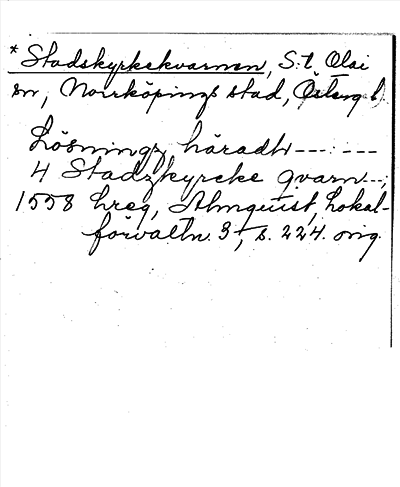 * Stadskyrkekvarnen, S:t Olai
sn, Norrköpings stad, Östergl.
Lösningz häradh---:---
4 Stadzkyrcke qvarn--;
1558 Lreg, Almquist, Lokal-
förvaltn. 3, s. 224. orig.